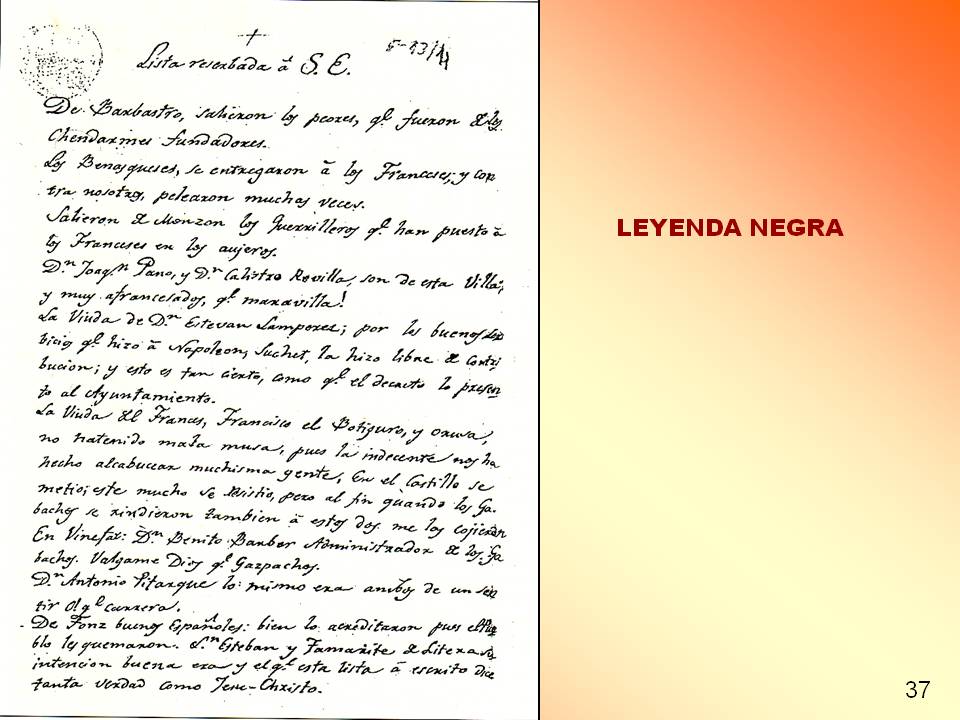 5-13/14
Lista reserbada á S. E.
De Barbastro, salieron los peores, qe. fueron de los
Chendarmes fundadores.
Los Benasqueses, se entregaron á los Franceses; y con
tra nosotros, pelearon muchas veces.
Salieron de Monzon los Guerrilleros qe. han puesto á
los Franceses en los aujeros.
Dn. Joaqn. Pano, y Dn. Calistro Revilla, son de esta Villa;
y muy afrancesados, qe. maravilla!
La Viuda de Dn. Estevan Lampores; por los buenos ser
bicios qe. hizo á Napoleon, Suchet, la hizo libre de contri
bucion; y esto es tan cierto, como qe. el decreto lo presen
to al Ayuntamiento.
La Viuda del Frances, Francisco el Botiguro, y
no hatenido mala musa, pues la indecente nos ha
hecho alcabucear muchisma gente, En el Castillo se
metio; este mucho se Ristio, pero al fin quando los Ga
bachos se rindieron tambien á estos dos me los cojieron
En Vinefar: Dn. Benito Barber Administrador de los Ga
bachos. Valgame Dios qe. Gazpachos.
Dn. Antonio Pitarque lo mismo era ambos de un sen
tir O! qe. carrera.
De Fonz buenos Españoles: bien lo acreditaron pues el Pue
blo les quemaron. Sn. Esteban y Tamarite de Litera su
intencion buena era y el qe. esta lista á escrito dice
tanta verdad como Jesu-Christo.
LEYENDA NEGRA
37